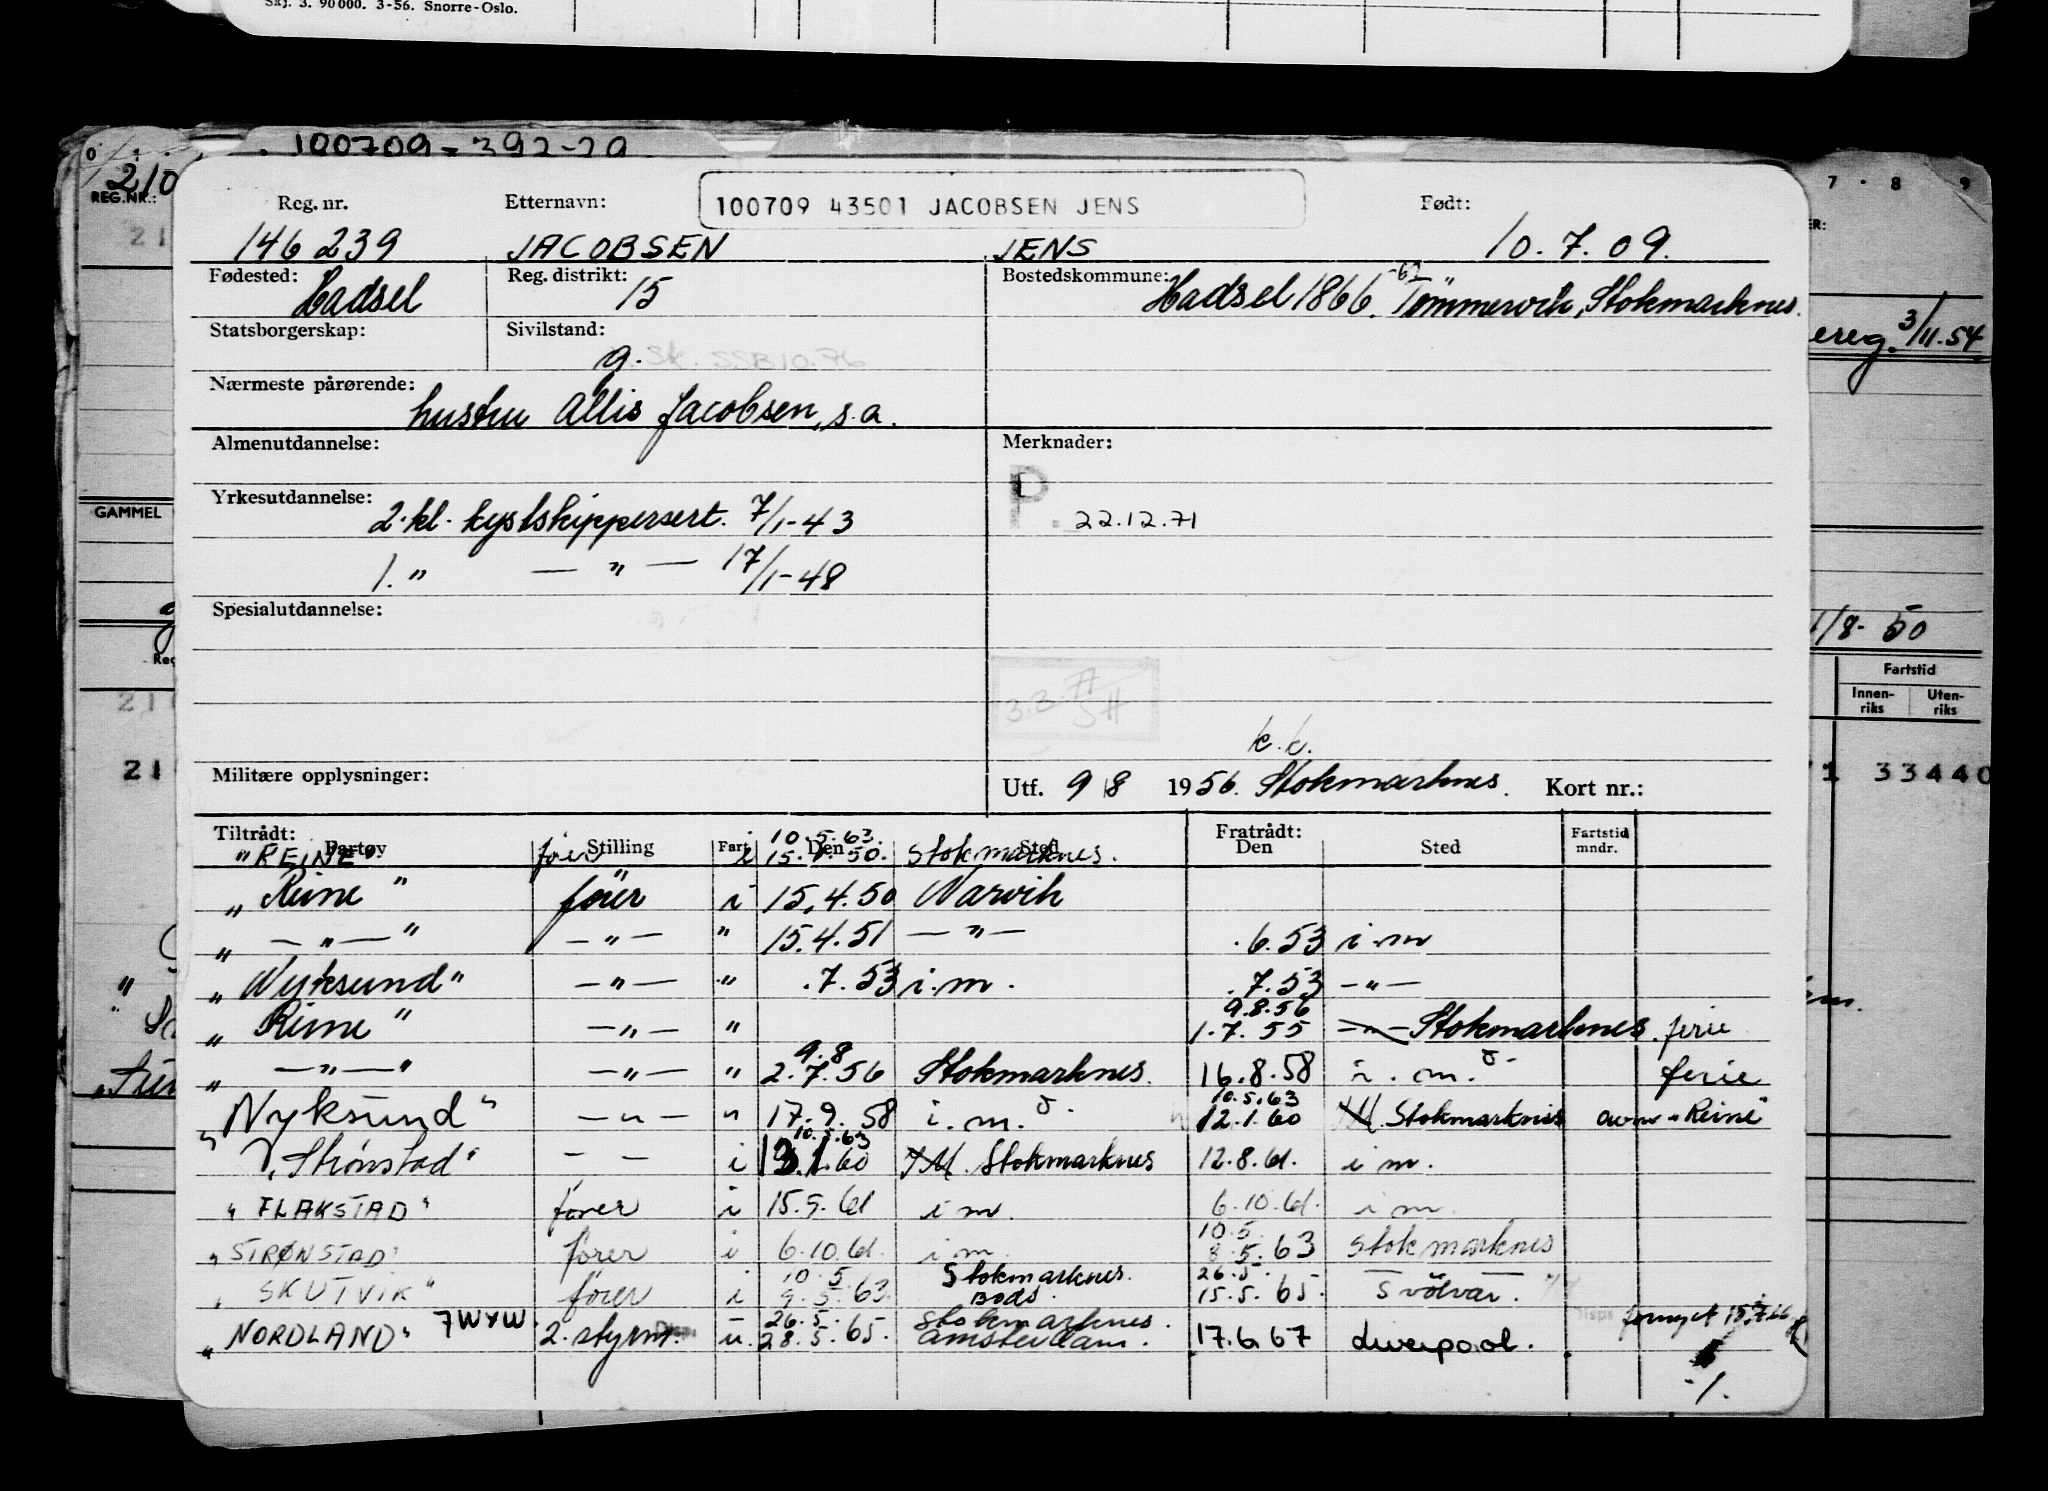 Skj. 3. 90000. 3-56. Snorre-Oslo.
100709 = 392-20
210
REG.NR.:
7 · 8 9
Reg. nr. Etternavn: 100709 43501 JACOBSEN JENS Født:
146 239 JACOBSEN JENS 10.7.09.
Fødested: Hadsel Reg. distrikt: 15 Bostedskommune: Hadsel 1866. Tømmervik, Stokmarknes.
Statsborgerskap: Sivilstand: g. Sk. SSB 10.76
ereg. 3/11.54
Nærmeste pårørende: hustru Allis Jacobsen, s.a.
Almenutdannelse: Merknader:
Yrkesutdannelse: 2. kl. kystskippersert. 7/1-43
P. 22.12.71
GAMMEL
1. " — " — 17/1-48
Spesialutdannelse:
1/8- 50
Fartstid
Innen-riks Uten-riks
3.3.77
SH
k.k.
Militære opplysninger: Utf. 9/8 1956. Stokmarknes. Kort nr.:
21 33440
Tiltrådt: Fratrådt: Fartstid mndr.
Fartøy Stilling Fart Den Sted Den Sted
"REINE" fører i 10.5.63. 15.1.50. Stokmarknes.
" Reine " fører i 15.4.50 Narvik
" — " — " — " — " 15.4.51 — " — .6.53 i.m
" Nyksund" — " — " .7.53 i.m. .7.53 — " —
" Reine " — " — " 9.8.56 1.7.55 — " — Stokmarknes. ferie
" — " — " — " — " 9.8 2.7.56 Stokmarknes. 16.8.58 i.m. ferie
" Nyksund" — " — " 17.9.58 i.m. 10.5.63 12.1.60 I.M. Stokmarknes avm "Reine"
" V. Strønstad" — — i 10.5.63 13.1.60 I.M. Stokmarknes 12.8.61. i m.
" FLAKSTAD" fører i 15.9.61 i m. 6.10.61. i m.
" STRØNSTAD" fører i 6.10.61. i m. 10.5. 8.5.63 Stokmarknes
" SKUTVIK" fører i 10.5 9.5.63. Stokmarknes. Bodø. 26.5. 15.5.65. Svolvær.
" NORDLAND" 7WYW. 2. styrm. u. 26.5. 28.5.65. Stokmarknes. Amsterdam. 17.6.67 Liverpool. fornyet 15.7.66
-/.